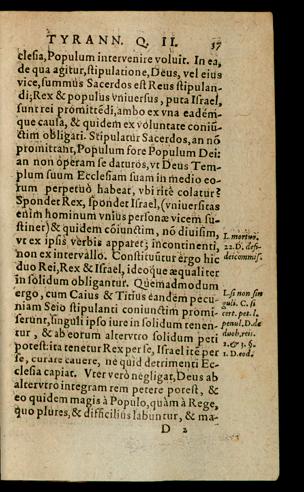 TYRANN. Q. II. 37
clesia, Populum intervenire voluit. In ea,
de qua agitur, stipulatione, Deus, vel eius
vice, summus Sacerdos est Reus stipulan-
di; Rex & populus vniuersus, puta Israel,
sunt rei promittēdi, ambo ex vna eadém-
que causa, & quidem ex voluntate coniũ-
ctim obligati. Stipulatur Sacerdos, an nō
promittant, Populum fore Populum Dei:
an non operam se daturos, vt Deus Tem-
plum suum Ecclesiam suam in medio eo-
rum perpetuò habeat, vbi ritè colatur?
Spondet Rex, spondet Israel, (vniuersitas
enim hominum vnius personæ vicem su-
stinet) & quidem cōiunctim, nō diuisim,
vt ex ipsis verbis apparet; incontinenti,
non ex intervallo. Constituutur ergo hic
duo Rei, Rex & Israel, ideoque æqualiter
in solidum obligantur. Quemadmodum
ergo, cum Caius & Titius eandem pecu-
niam Seio stipulanti coniunctim promi-
serunt, singuli ipso iure in solidum tenen-
tur, & ab eorum altervtro solidum peti
potest: ita tenetur Rex per se, Israel itē per
se, curare cauere, ne quid detrimenti Ec-
clesia capiat. Vter verò negligat, Deus ab
altervtro integram rem petere potest, &
eo quidem magis à Populo, quàm à Rege,
quo plures, & difficilius labuntur, & ma-
D 2
L. mortuo.
22. D. de fi-
deicommiss.
L. si non sin
guli. C. si
cert. pet. l.
penul. D. de
duob. reis.
2. & 3. §.
1. D. eod.